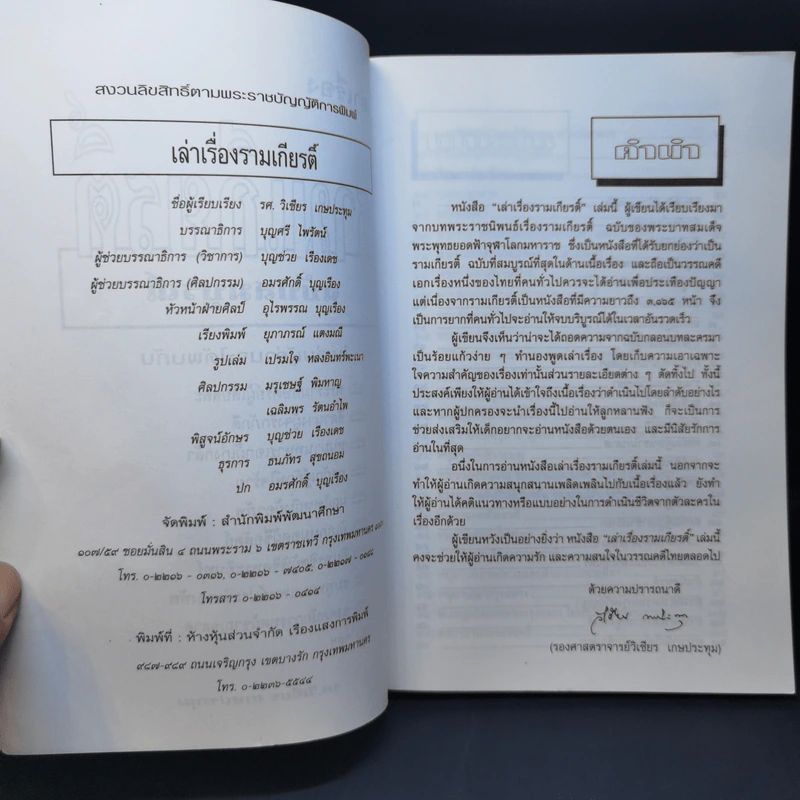 สงวนลิขสิทธิ์ตามพระราชบัญญัติการพิมพ์
เล่าเรื่องรามเกียรติ์
ชื่อผู้เรียบเรียง รศ. วิเชียร เกษประทุม
บรรณาธิการ บุญศรี ไพรัตน์
ผู้ช่วยบรรณาธิการ (วิชาการ) บุญช่วย เรืองเดช
ผู้ช่วยบรรณาธิการ (ศิลปกรรม) อมรศักดิ์ บุญเรือง
หัวหน้าฝ่ายศิลป์ อุไรพรรณ บุญเรือง
เรียงพิมพ์ ยุภาภรณ์ แตงมณี
รูปเล่ม เปรมใจ หลงอินทร์พะเนา
ศิลปกรรม มรุเชษฐ์ พิมทาญ
เฉลิมพร รัตนอำไพ
พิสูจน์อักษร บุญช่วย เรืองเดช
ธุรการ ธนภัทร สุขถนอม
ปก อมรศักดิ์ บุญเรือง
จัดพิมพ์ : สำนักพิมพ์พัฒนาศึกษา
๑๐๗/๕๙ ซอยมั่นสิน ๔ ถนนพระราม ๖ เขตราชเทวี กรุงเทพมหานคร
โทร. ๐-๒๒๑๖ - ๐๓๑๖, ๐-๒๒๑๖ - ๗๔๐๕,
โทรสาร ๐-๒๒๑๖ - ๐๔๑๔
พิมพ์ที่ : ห้างหุ้นส่วนจำกัด เรืองแสงการพิมพ์
๙๘๗-๙๘๙ ถนนเจริญกรุง เขตบางรัก กรุงเทพมหานคร
โทร. ๐-๒๒๓๖-๕๕๔๔
คำนำ
หนังสือ “เล่าเรื่องรามเกียรติ์” เล่มนี้ ผู้เขียนได้เรียบเรียงมา
จากบทพระราชนิพนธ์เรื่องรามเกียรติ์ ฉบับของพระบาทสมเด็จ
พระพุทธยอดฟ้าจุฬาโลกมหาราช ซึ่งเป็นหนังสือที่ได้รับยกย่องว่าเป็น
รามเกียรติ์ ฉบับที่สมบูรณ์ที่สุดในด้านเนื้อเรื่อง และถือเป็นวรรณคดี
เอกเรื่องหนึ่งของไทยที่คนทั่วไปควรจะได้อ่านเพื่อประเทืองปัญญา
แต่เนื่องจากรามเกียรติ์เป็นหนังสือที่มีความยาวถึง ๓,๑๖๕ หน้า จึง
เป็นการยากที่คนทั่วไปจะอ่านให้จบบริบูรณ์ได้ในเวลาอันรวดเร็ว
ผู้เขียนจึงเห็นว่าน่าจะได้ถอดความจากฉบับกลอนบทละครมา
เป็นร้อยแก้วง่าย ๆ ทำนองพูดเล่าเรื่อง โดยเก็บความเอาเฉพาะ
ใจความสำคัญของเรื่องเท่านั้นส่วนรายละเอียดต่าง ๆ ตัดทิ้งไป ทั้งนี้
ประสงค์เพียงให้ผู้อ่านได้เข้าใจถึงเนื้อเรื่องว่าดำเนินไปโดยลำดับอย่างไร
และหากผู้ปกครองจะนำเรื่องนี้ไปอ่านให้ลูกหลานฟัง ก็จะเป็นการ
ช่วยส่งเสริมให้เด็กอยากจะอ่านหนังสือด้วยตนเอง และมีนิสัยรักการ
อ่านในที่สุด
อนึ่งในการอ่านหนังสือเล่าเรื่องรามเกียรติ์เล่มนี้ นอกจากจะ
ทำให้ผู้อ่านเกิดความสนุกสนานเพลิดเพลินไปกับเนื้อเรื่องแล้ว ยังทำ
ให้ผู้อ่านได้คติแนวทางหรือแบบอย่างในการดำเนินชีวิตจากตัวละครใน
เรื่องอีกด้วย
ผู้เขียนหวังเป็นอย่างยิ่งว่า หนังสือ “เล่าเรื่องรามเกียรติ์” เล่มนี้
คงจะช่วยให้ผู้อ่านเกิดความรัก และความสนใจในวรรณคดีไทยตลอดไป
ด้วยความปรารถนาดี
(รองศาสตราจารย์วิเชียร เกษประทุม)